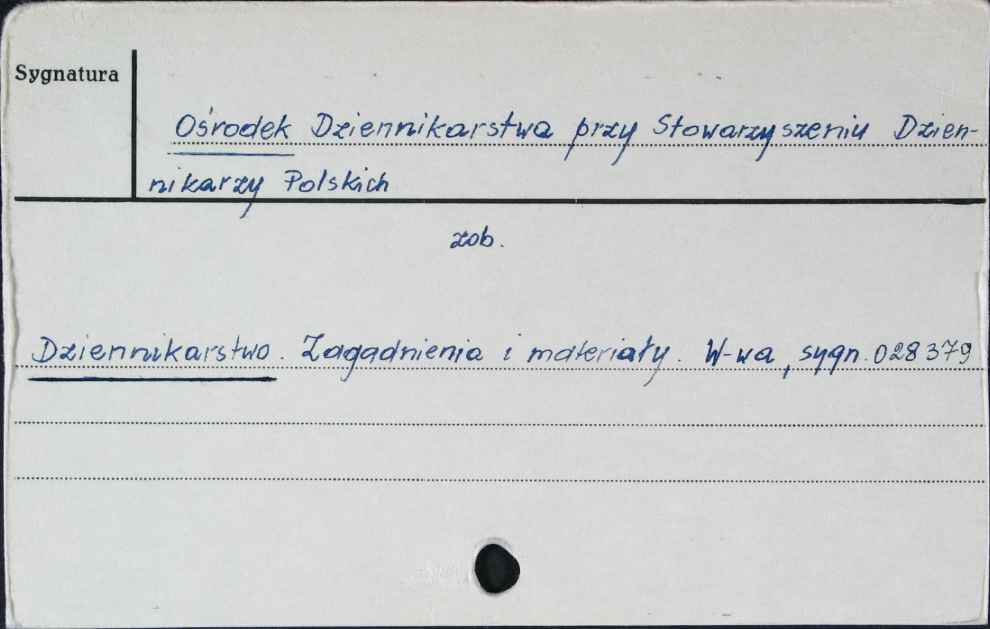 Sygnatura
Ośrodek Dziennikarstwa przy Stowarzyszeniu Dzien-
nikarzy Polskich
zob.
Dziennikarstwo. Zagadnienia i materiały. W-wa, sygn. 028379